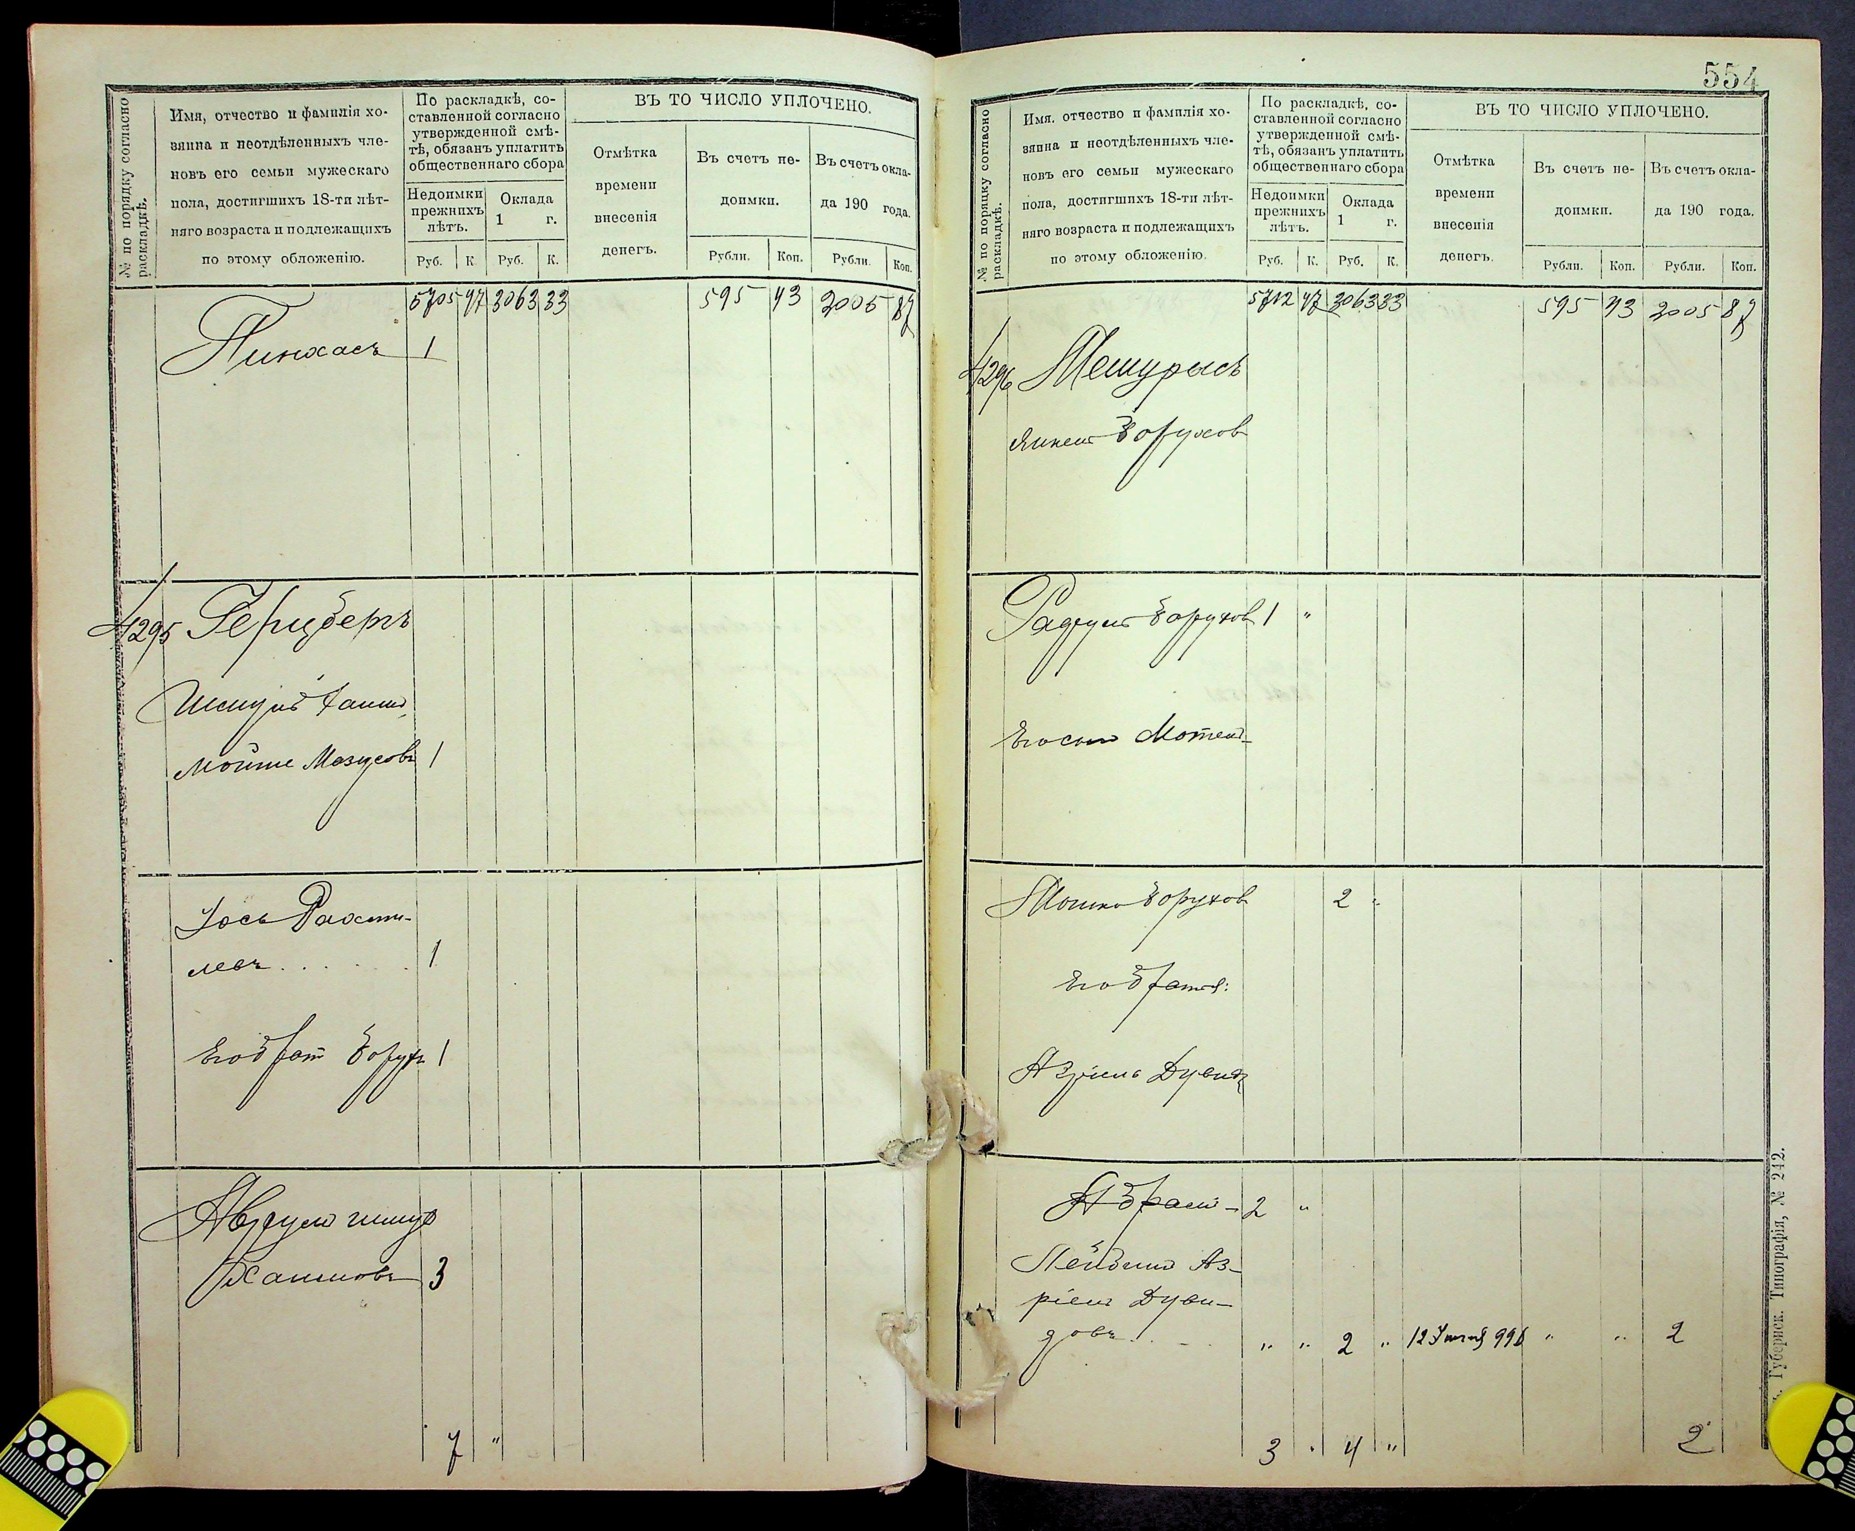 № по порядку согласно раскладкѣ.
Имя, отчество и фамилія хо-
зяина и неотдѣленныхъ чле-
новъ его семьи мужескаго
пола, достигшихъ 18-ти лѣт-
няго возраста и подлежащихъ
по этому обложенію.
По раскладкѣ, со-
ставленной согласно
утвержденной смѣ-
тѣ, обязанъ уплатить
общественнаго сбора
Недоимки
прежнихъ
лѣтъ.
Оклада
1 г.
Руб. К. Руб. К.
ВЪ ТО ЧИСЛО УПЛОЧЕНО.
Отмѣтка
времени
внесенія
денегъ.
Въ счетъ не-
доимки.
Въ счетъ окла-
да 190 года.
Рубли. Коп. Рубли. Коп.
5705 47 3063 33 595 43 2005 87
Пинхасъ 1
4295 Герцбергъ
Шмуль Хаимъ
Мойше 1
Іось Рахми-
левъ 1
Его братъ Борухъ 1
Хаимовъ 3
7 "
554
№ по порядку согласно раскладкѣ.
Имя, отчество и фамилія хо-
зяина и неотдѣленныхъ чле-
новъ его семьи мужескаго
пола, достигшихъ 18-ти лѣт-
няго возраста и подлежащихъ
по этому обложенію.
По раскладкѣ, со-
ставленной согласно
утвержденной смѣ-
тѣ, обязанъ уплатить
общественнаго сбора
Недоимки
прежнихъ
лѣтъ.
Оклада
1 г.
Руб. К. Руб. К.
ВЪ ТО ЧИСЛО УПЛОЧЕНО.
Отмѣтка
времени
внесенія
денегъ.
Въ счетъ не-
доимки.
Въ счетъ окла-
да 190 года.
Рубли. Коп. Рубли. Коп.
5712 47 3063 33 595 43 2005 87
4296 Мешурысъ
Янкель Борухов
Борухов 1 "
Его сынъ Мотель
Мошко Борухов 2 "
Его братья:
Азріель Дувидъ
Абрамъ - 2 "
Лейбишъ Аз-
ріель Дуви-
довъ " " 2 " 12 " " 2
3 " 4 " 2
Губернск. Типографія, № 242.